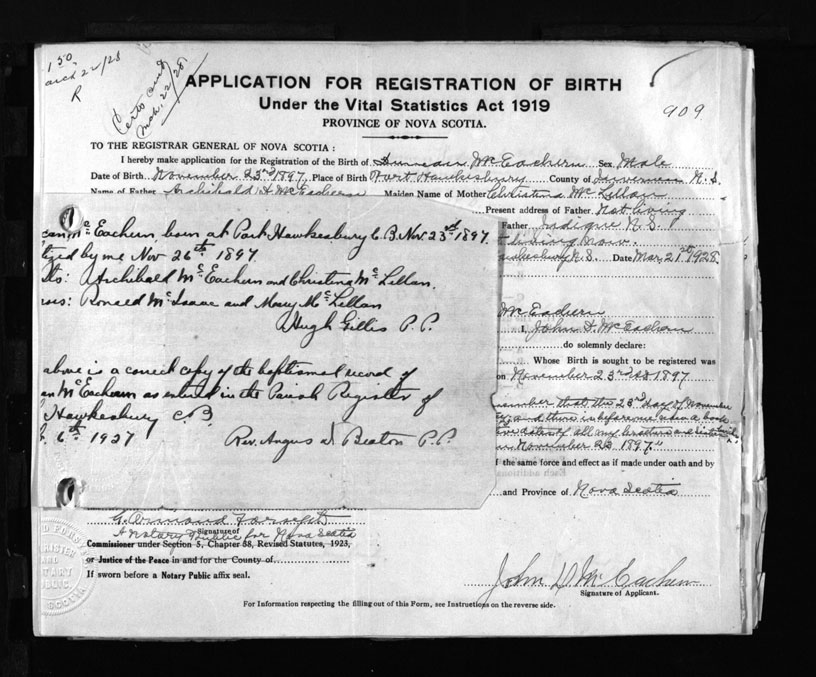 1 50
March 22/28
R
Certo and
Mch. 22/28
APPLICATION FOR REGISTRATION OF BIRTH
Under the Vital Statistics Act 1919
PROVINCE OF NOVA SCOTIA.
909
TO THE REGISTRAR GENERAL OF NOVA SCOTIA :
I hereby make application for the Registration of the Birth of Dunncan McEachern Sex Male
Date of Birth November 23rd 1897 Place of Birth Port Hawkesbury County of Inverness N.S.
Name of Father Archibald A McEachern Maiden Name of Mother Christina McLellan
Present address of Father Not living
Father Judique N.S.
living now.
N.S. Date Mar. 21st 1928.
Mc Eachern born at Port Hawkesbury C.B. Nov 23rd 1897.
tized by me Nov 26th 1897.
ts: Archibald McEachern and Christina McLellan.
sors: Ronald McIsaac and Mary McLellan
Hugh Gillis P.P.
McEachern
I, John D. McEachern
do solemnly declare:
Whose Birth is sought to be registered was
on November 23rd 1897
above is a correct copy of the baptismal record of
an McEachern as entered in the Parish Register of
Hawkesbury C.B.
6th 1927 Rev. Angus Beaton P.P.
member that the 23rd day of November
and there is before me a book
of all my brothers and sisters
November 23 1897."
f the same force and effect as if made under oath and by
and Province of Nova Scotia
G. Ormond Forsyth
Signature of
A Notary Public for Nova Scotia
Commissioner under Section 5, Chapter 38, Revised Statutes, 1923,
or Justice of the Peace in and for the County of
If sworn before a Notary Public affix seal.
John D McEachern
Signature of Applicant.
For Information respecting the filling out of this Form, see Instructions on the reverse side.